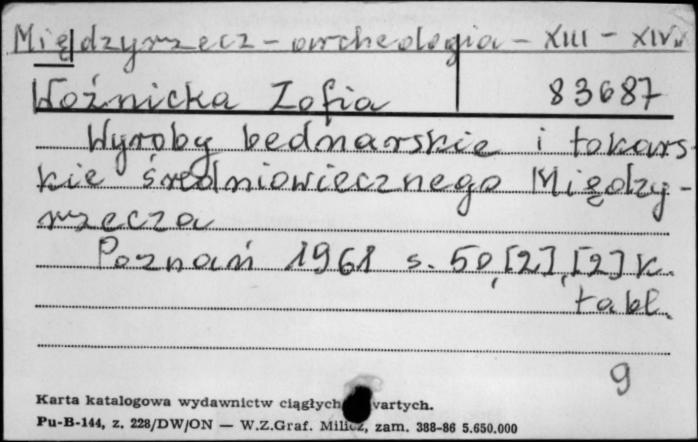 Międzyrzecz - archeologia - XIII - XIV w
Woźnicka Zofia 83687
Wyroby bednarskie i tokars-
kie średniowiecznego Między-
rzecza
Poznań 1961 s. 50, [2], [2] k.
tabl.
9
Karta katalogowa wydawnictw ciągłych wartych.
Pu-B-144, z. 228/DW/ON — W.Z.Graf. Milicz, zam. 388-86 5.650.000